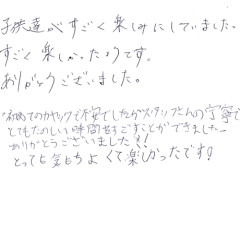 子供達がすごく楽しみにしていました。
すごく楽しかったようです。
ありがとうございました。
初めてのカヤックで不安でしたがスタッフさんの丁寧で
とてもたのしい時間をすごすことができました。
ありがとうございました!!
とっても気もちよくて楽しかったです!